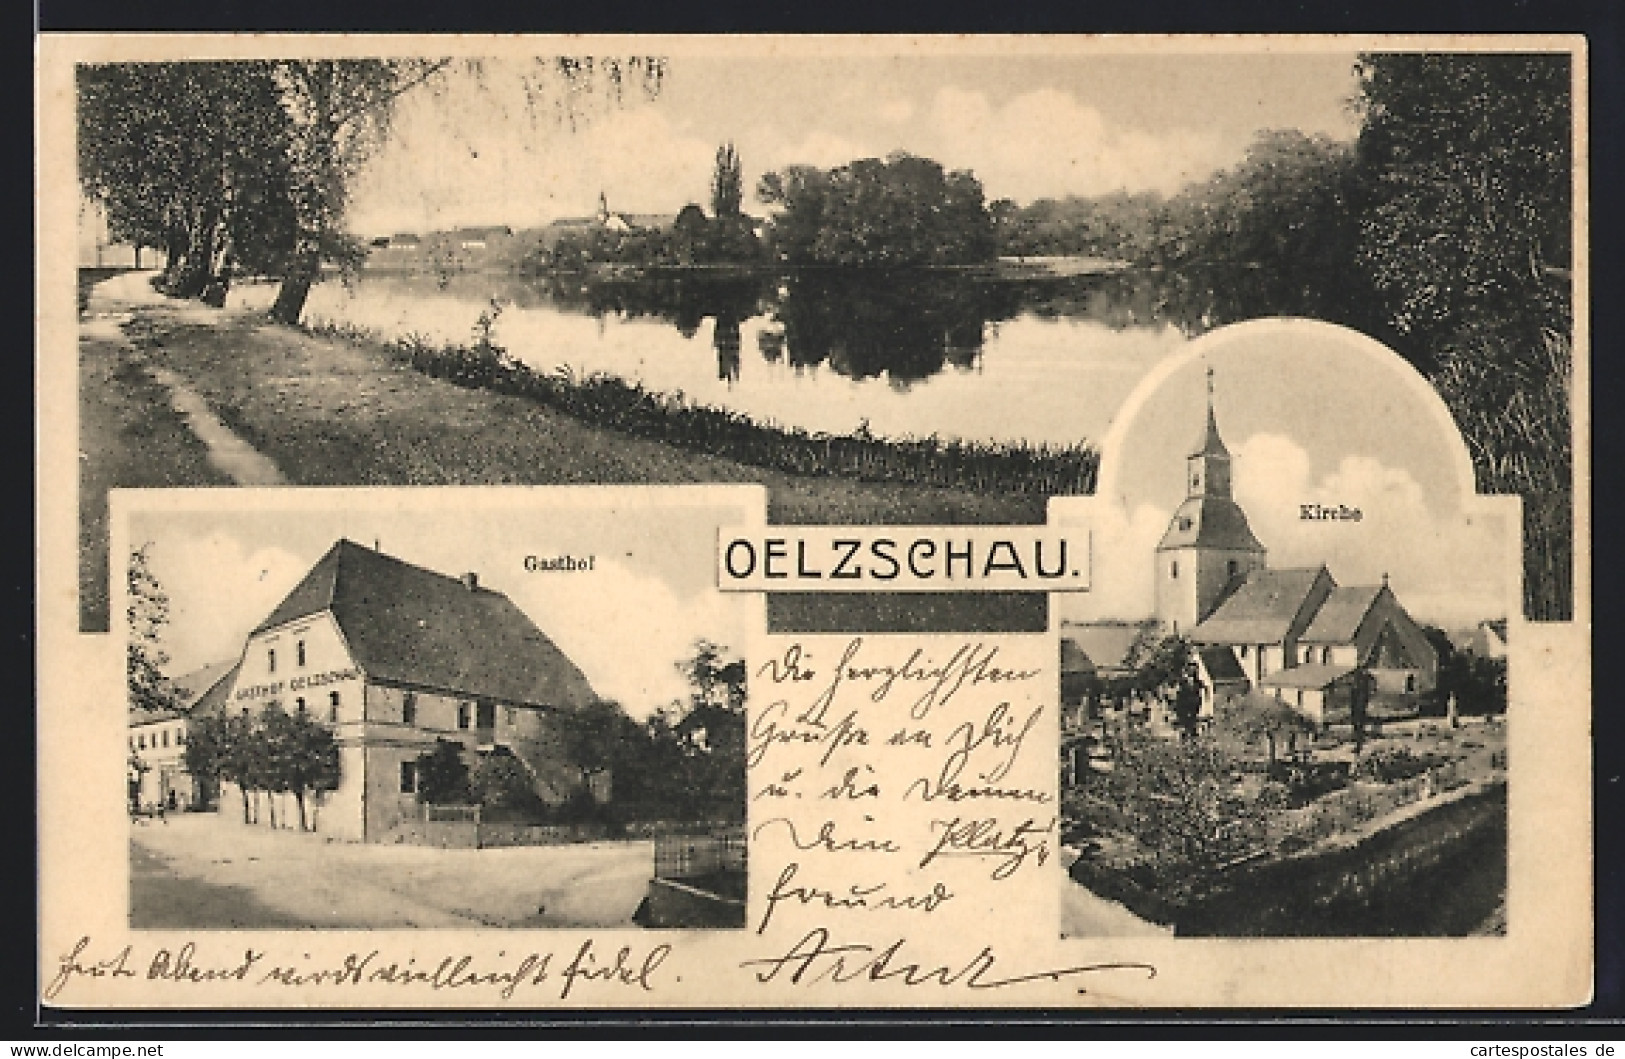 Gasthof
OELZSCHAU.
Kirche
GASTHOF OELZSCHAU
Die herzlichsten
Grüße an Dich
u. die Deinen
Dein
freund
Artur
heute Abend wirds vielleicht fidel.
cartespostales de
delcampe.net